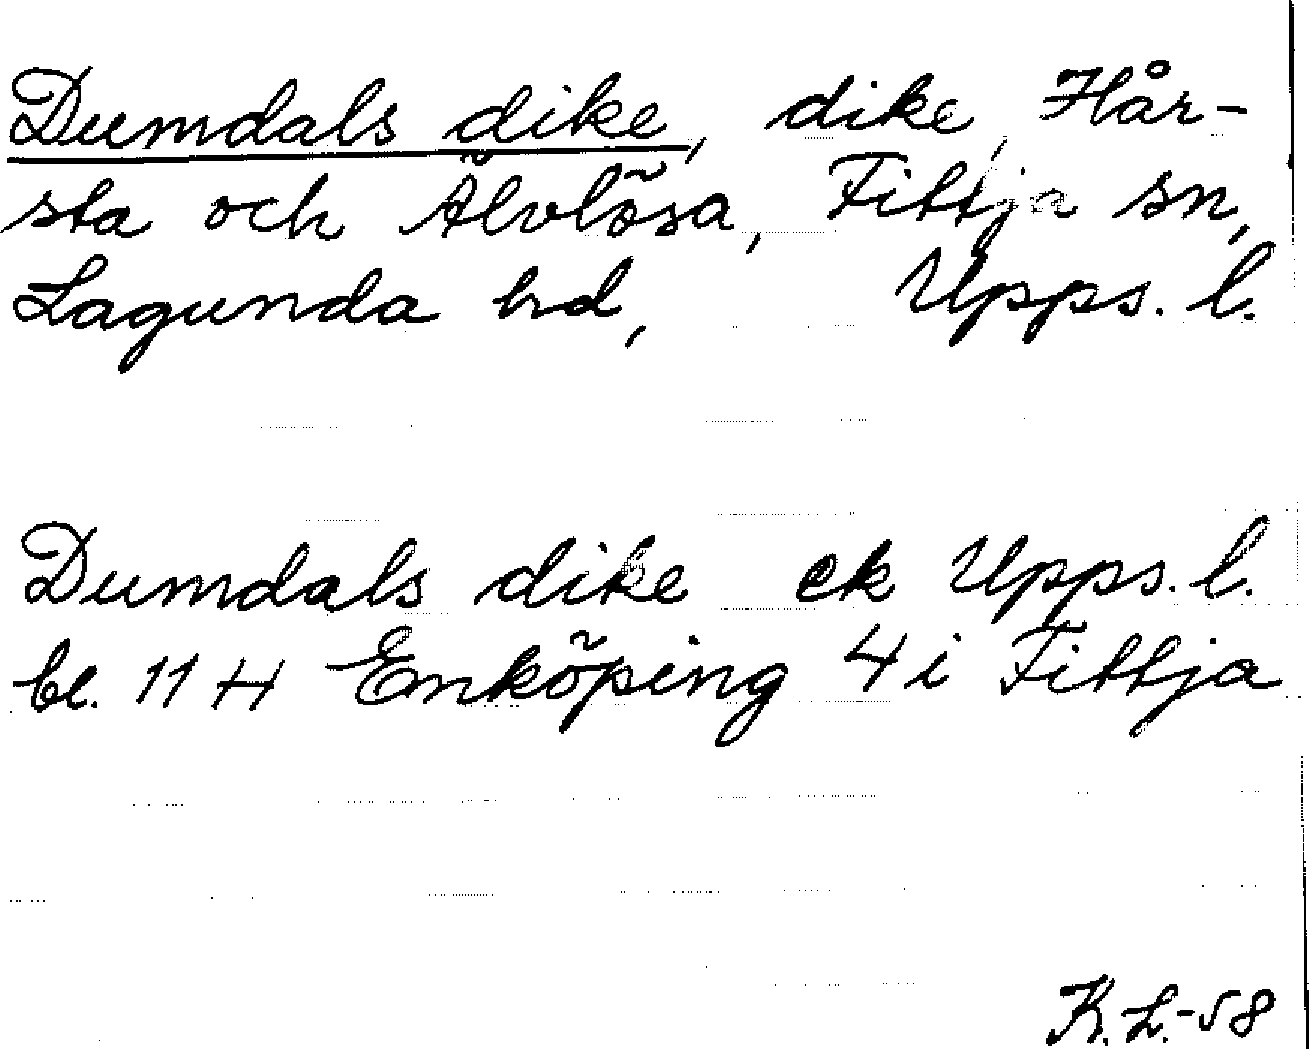 Dumdals dike, dike, Hår-
sta och Älvlösa, Fittja sn,
Lagunda hd, Upps. l.
Dumdals dike ek Upps. l.
bl. 11 H Enköping 4 i Fittja
K. L. -58